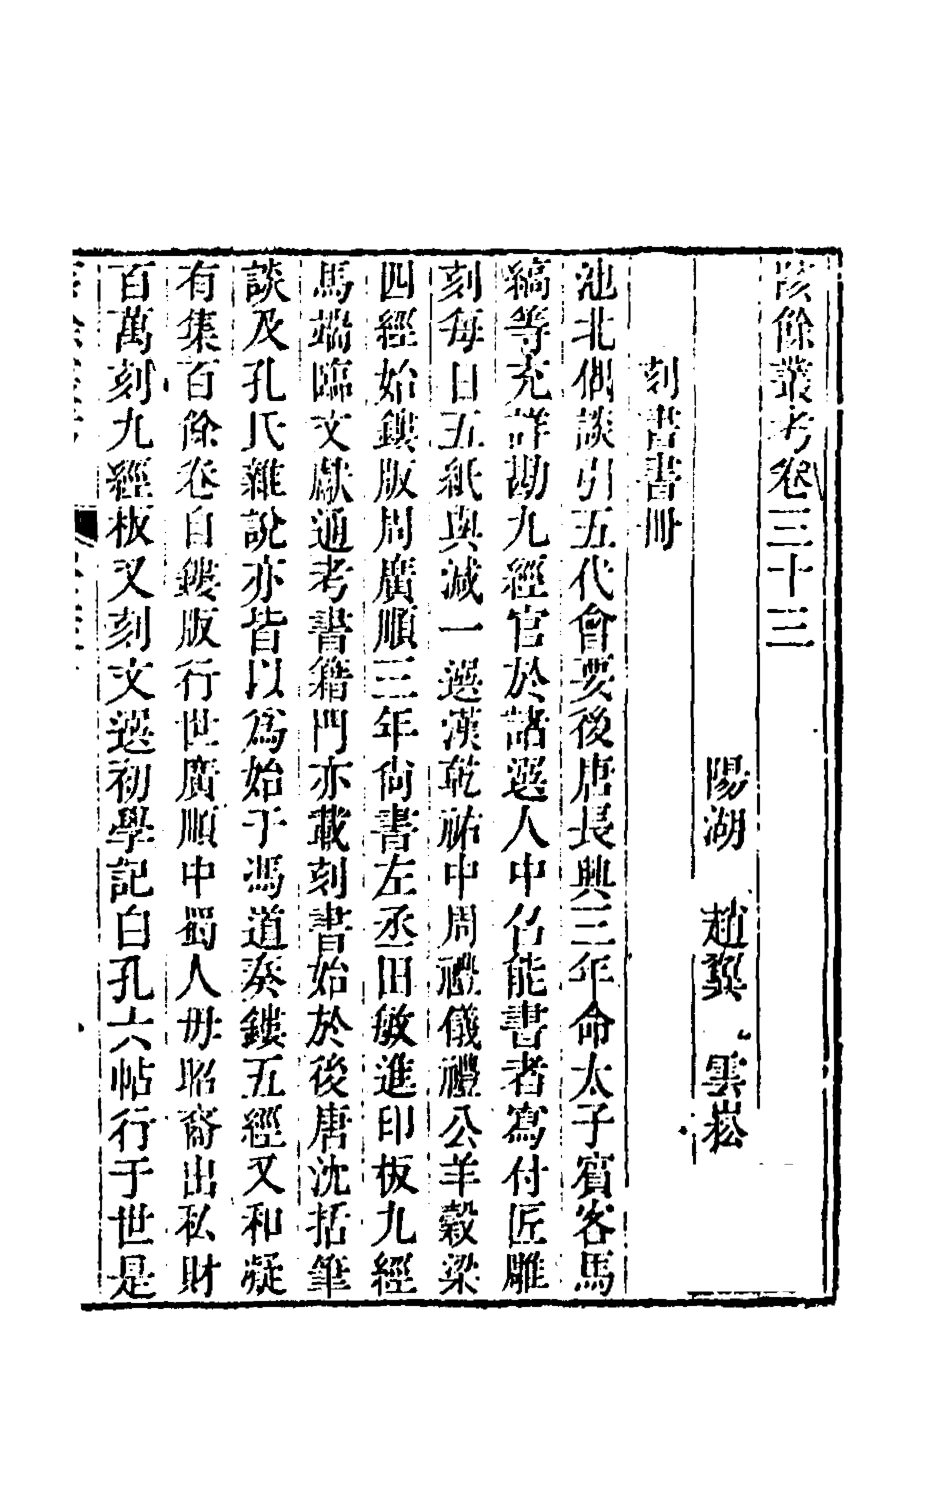 陔餘叢考卷三十三
陽湖 趙翼 雲崧
刻書書冊
池北偶談引五代會要後唐長興三年命太子賓客馬
縞等充詳勘九經官於諸選人中召能書者寫付匠雕
刻每日五紙與減一選漢乾祐中周禮儀禮公羊穀梁
四經始鏤版周廣順三年尙書左丞田敏進印板九經
馬端臨文獻通考書籍門亦載刻書始於後唐沈括筆
談及孔氏雜說亦皆以爲始于馮道奏鏤五經又和凝
有集百餘卷自鏤版行世廣順中蜀人毋昭裔出私財
百萬刻九經板又刻文選初學記白孔六帖行于世是